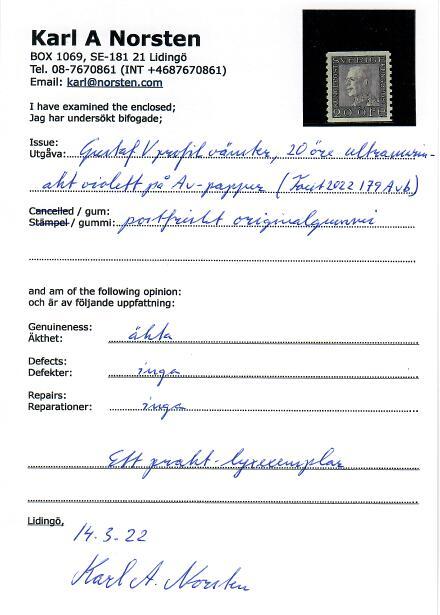 Karl A Norsten
BOX 1069, SE-181 21 Lidingö
Tel. 08-7670861 (INT +4687670861)
Email: karl@norsten.com
SVERIGE
20 ÖRE
I have examined the enclosed;
Jag har undersökt bifogade;
Issue:
Utgåva: Gustaf V profil vänster, 20 öre ultramarin-
akt violett på Av-papper (Facit 2022 179Avb)
Cancelled / gum:
Stämpel / gummi: postfriskt originalgummi
and am of the following opinion:
och är av följande uppfattning:
Genuineness:
Äkthet: äkta
Defects:
Defekter: inga
Repairs:
Reparationer: inga
Ett prakt-lyxexemplar
Lidingö,
14.3.22
Karl A. Norsten